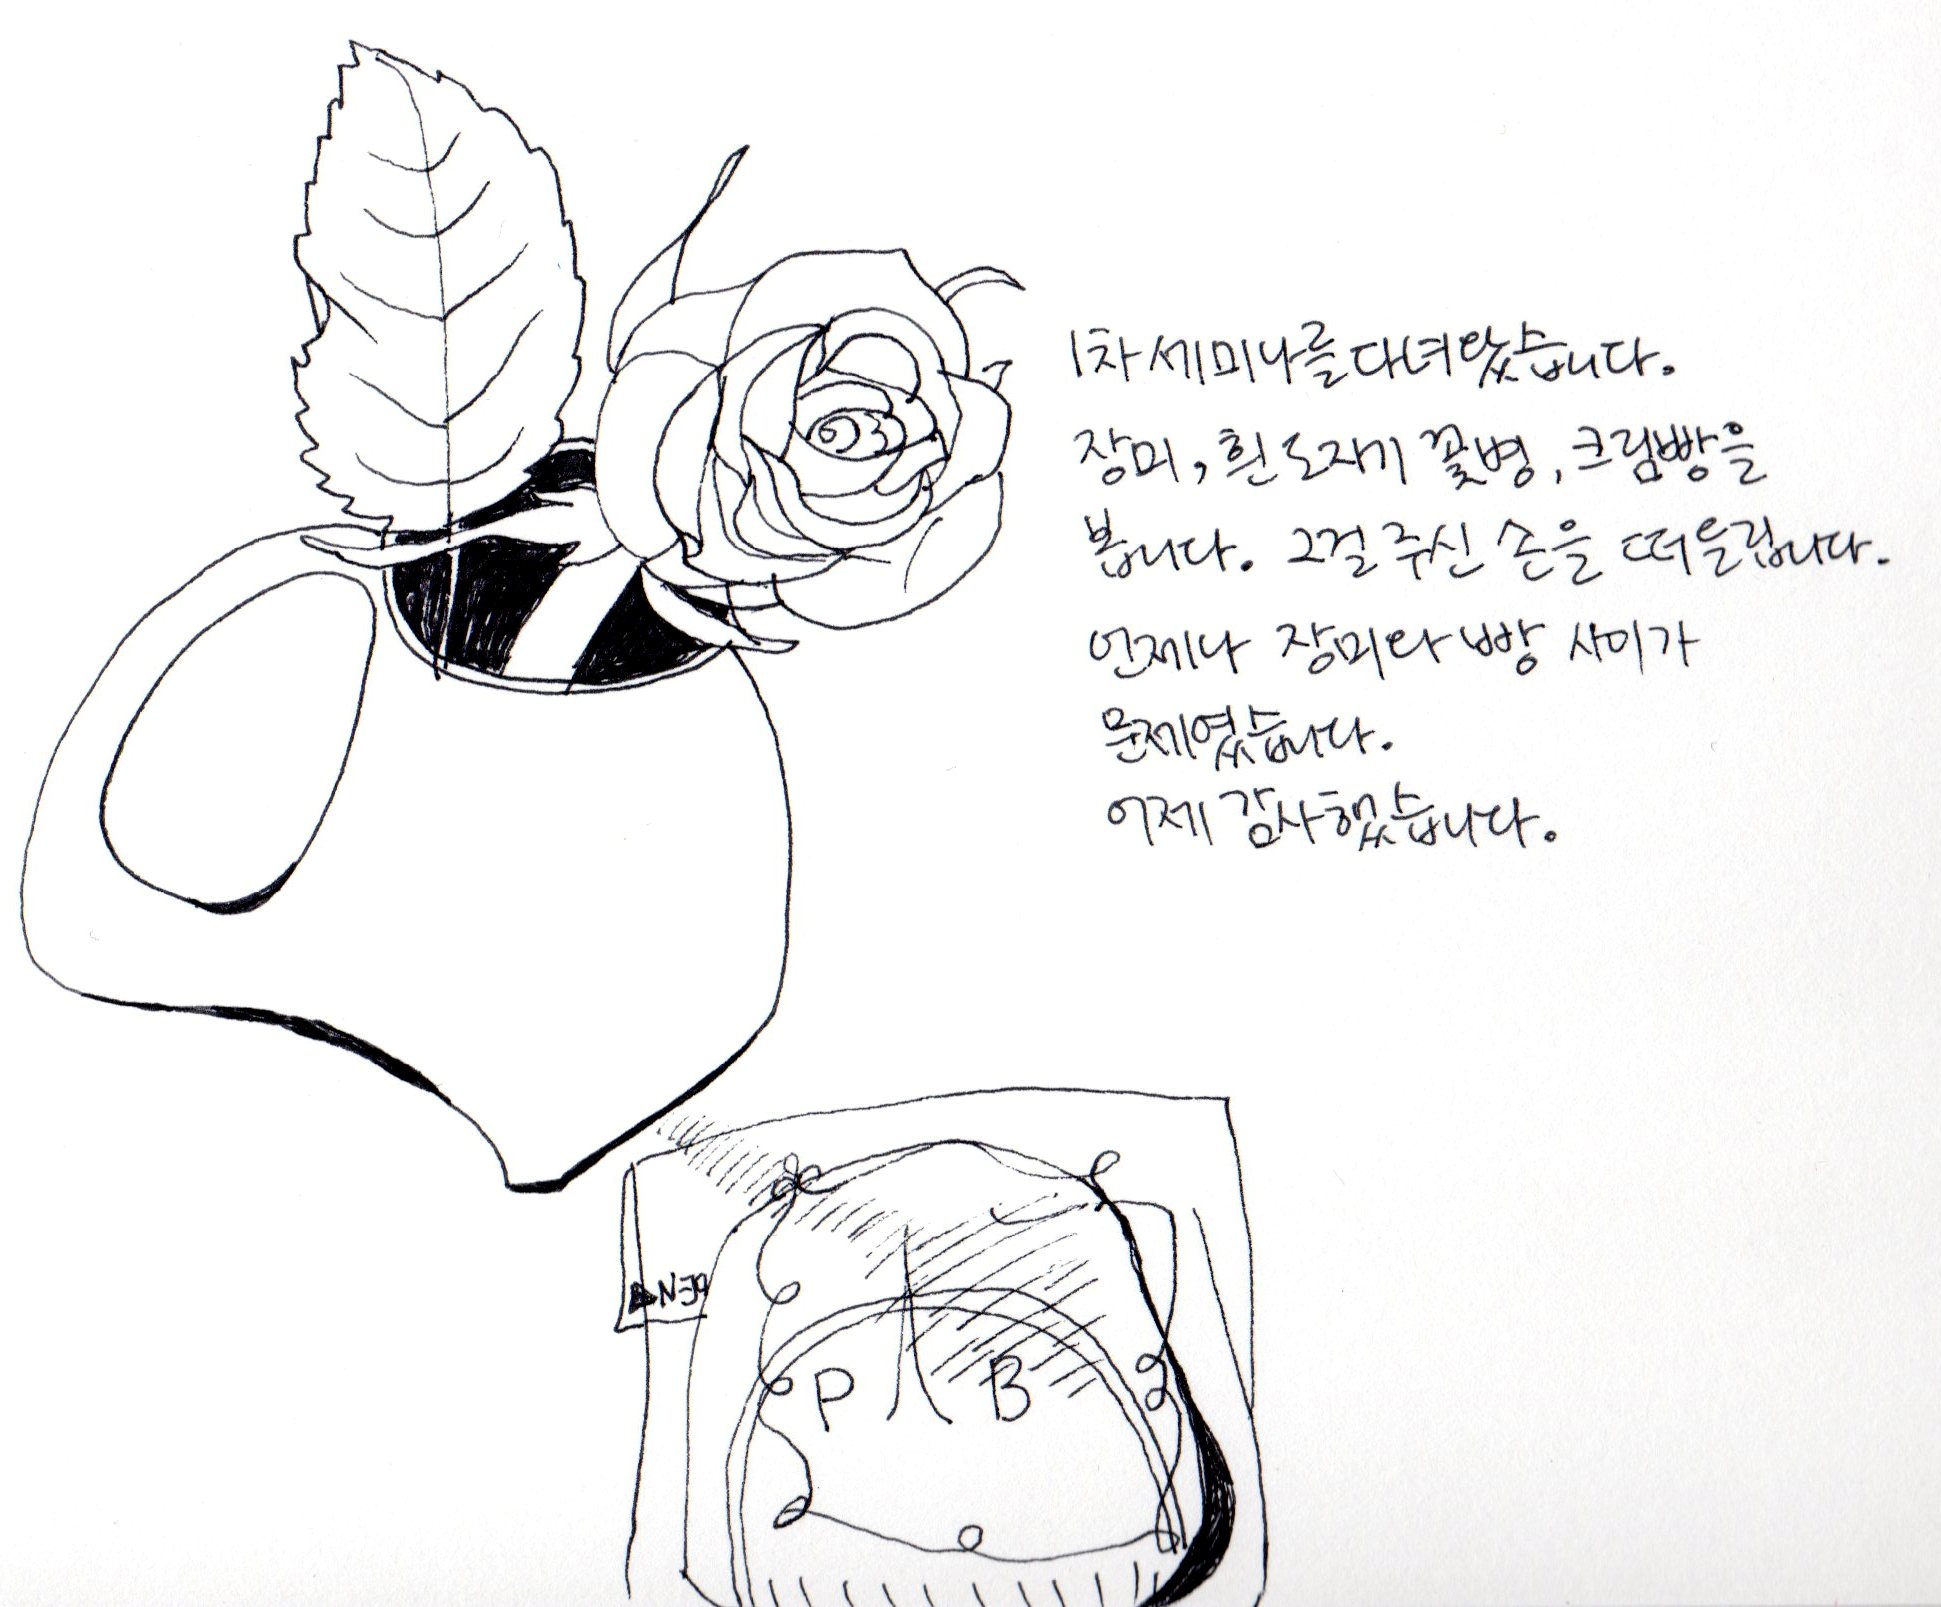 1차 세미나를 다녀왔습니다.
장미, 흰 도자기 꽃병, 크림빵을
봅니다. 그걸 주신 손을 떠올립니다.
언제나 장미와 빵 사이가
문제였습니다.
어제 감사했습니다.
P B